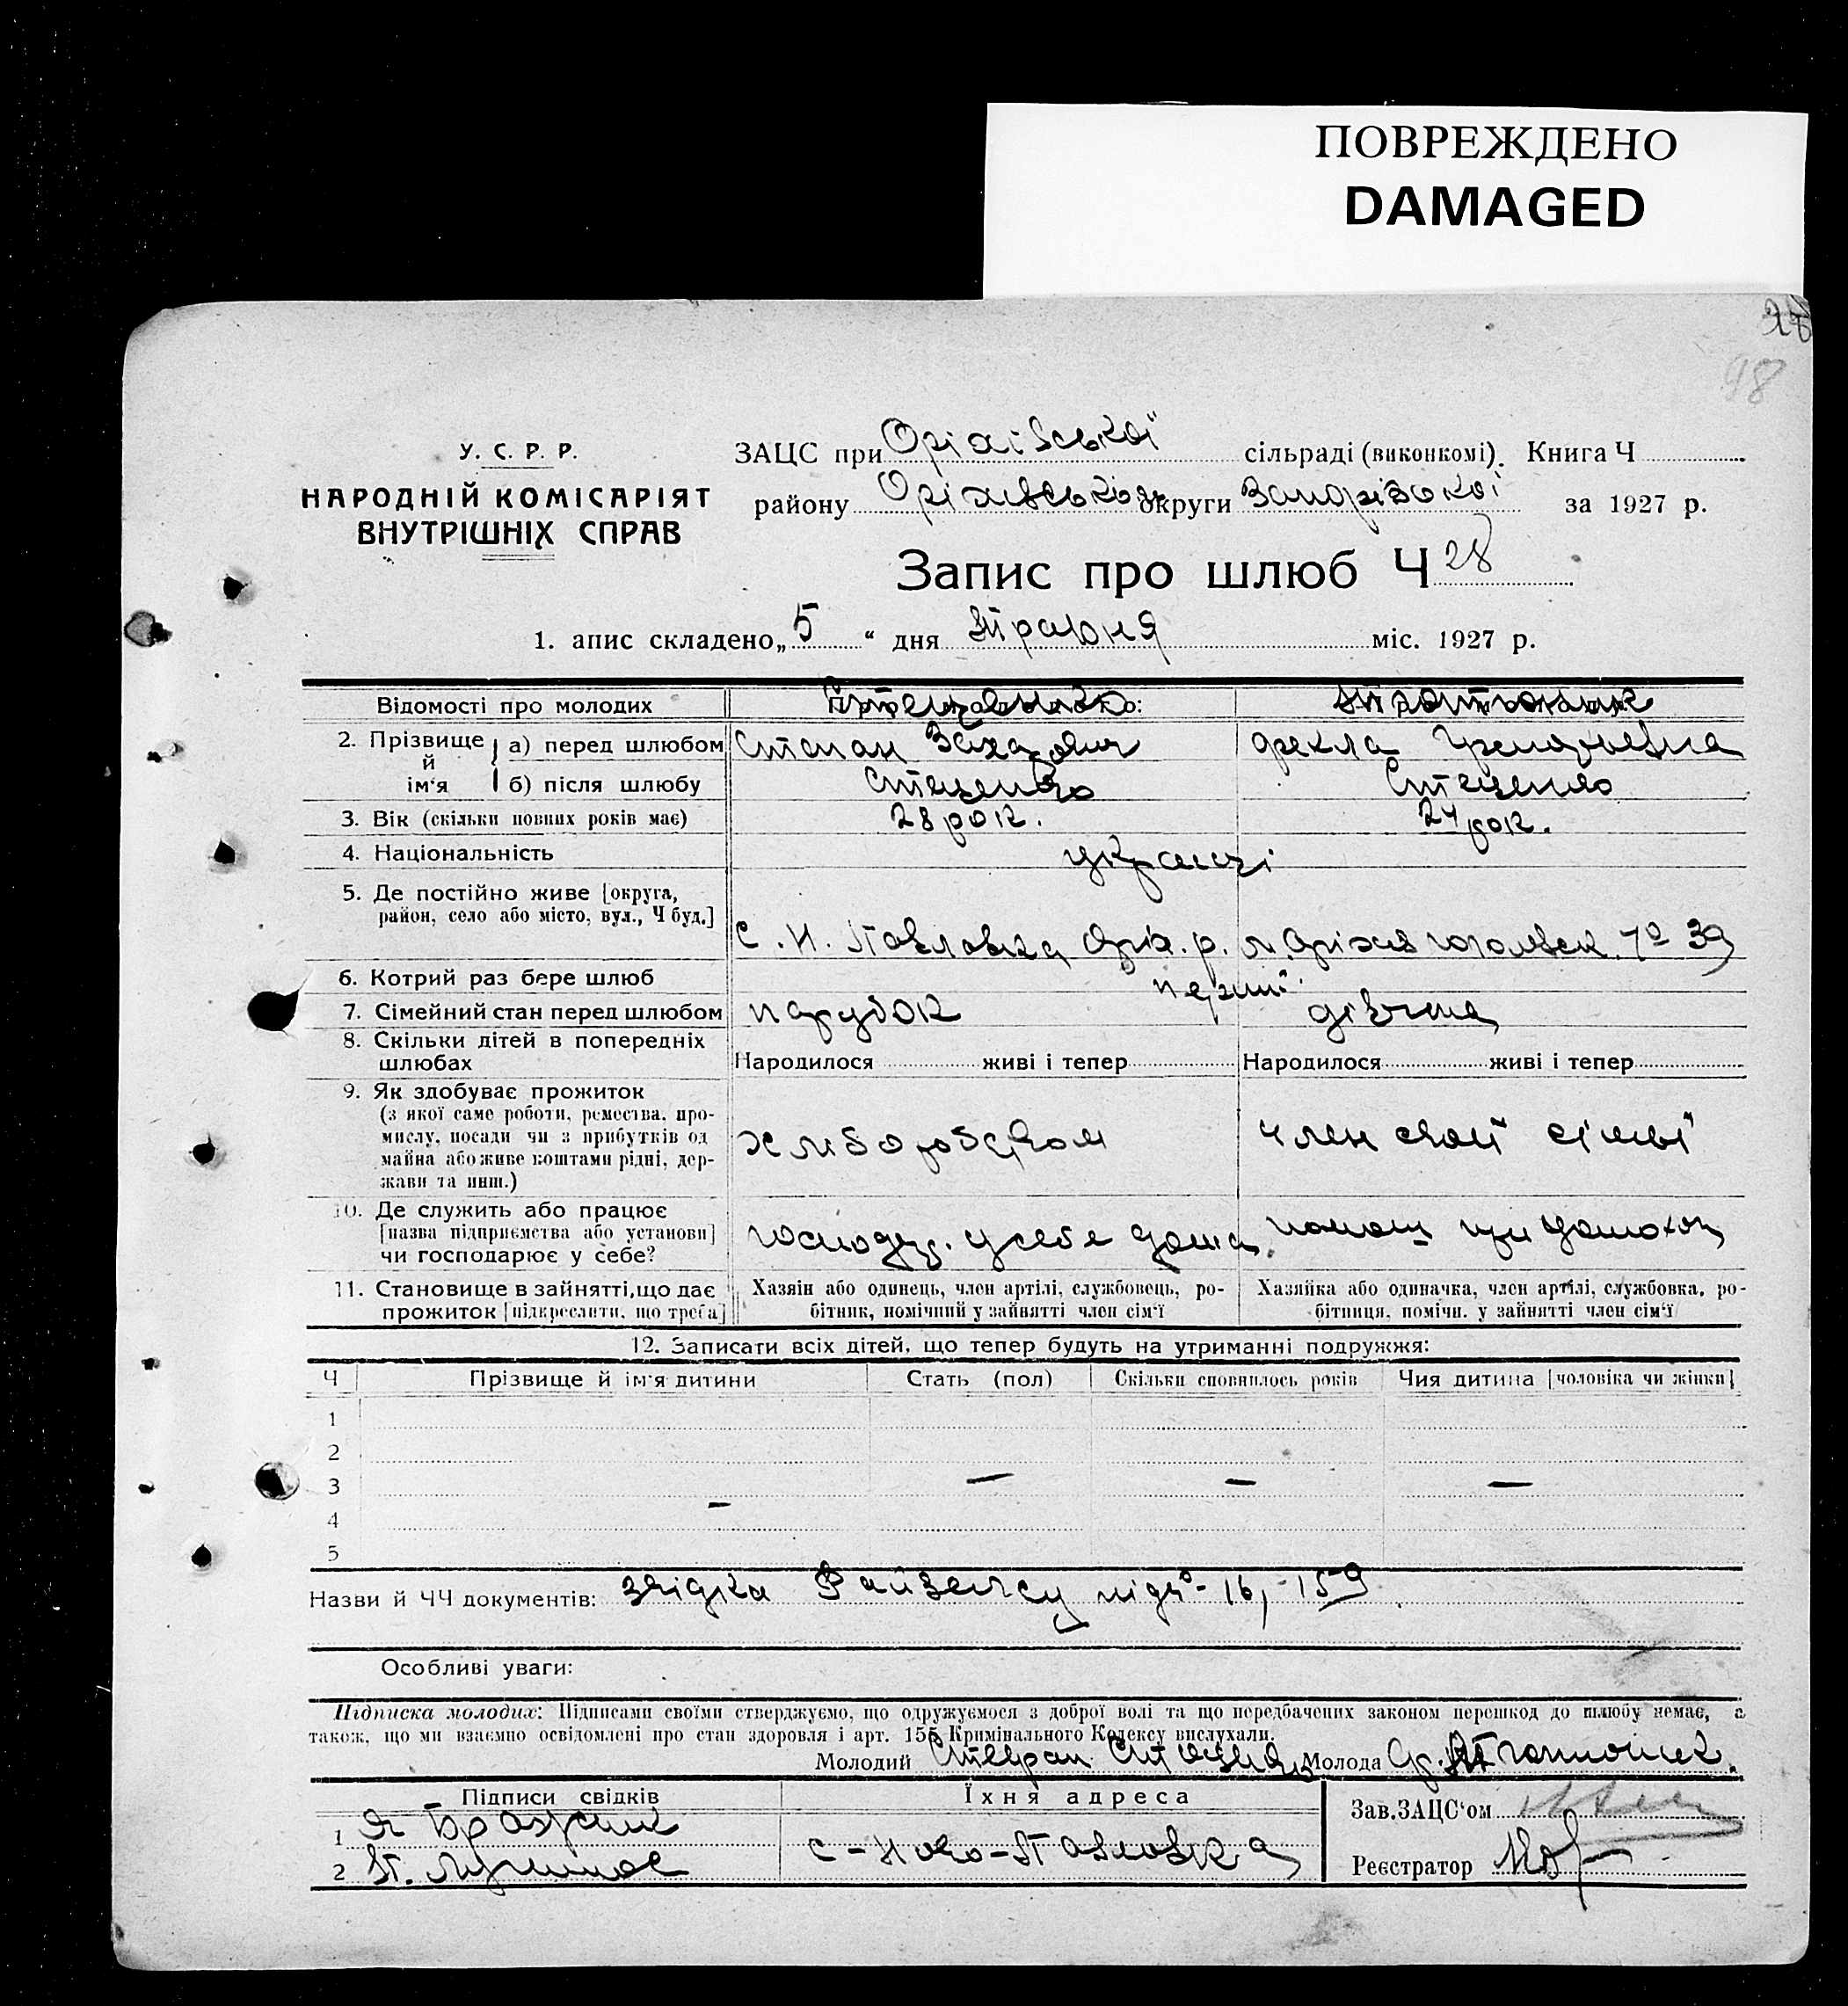 ПОВРЕЖДЕНО
DAMAGED
28
98
У. С. Р. Р.
НАРОДНІЙ КОМІСАРІЯТ
ВНУТРІШНІХ СПРАВ
ЗАЦС при Оріхівської сільраді (виконкомі). Книга Ч
району Оріхівського округи Запорізької за 1927 р.
Запис про шлюб Ч 28
1. апис складено „5“ дня Травня міс. 1927 р.
Відомості про молодих
2. Прізвище й ім'я а) перед шлюбом Степан Фекла
б) після шлюбу Стеценко Стеценко
3. Вік (скільки повних років має) 28 рок. 24 рок.
4. Національність українці
5. Де постійно живе [округа,
район, село або місто, вул., Ч буд.]
с. Н. Павловка Оріх. р. м. Оріхів 39
6. Котрий раз бере шлюб перший
7. Сімейний стан перед шлюбом парубок дівчина
8. Скільки дітей в попередніх
шлюбах Народилося живі і тепер Народилося живі і тепер
9. Як здобуває прожиток
(з якої саме роботи, ремества, про-
мислу, посади чи з прибутків од
майна або живе коштами рідні, дер-
жави та инш.)
хліборобством член своєї сімьї
10. Де служить або працює
[назва підприємства або установи]
чи господарює у себе?
у себе дома при
11. Становище в зайнятті, що дає
прожиток [підкреслити, що треба]
Хазяїн або одинець, член артілі, службовець, ро-
бітник, помічний у зайнятті член сім'ї
Хазяйка або одиначка, член артілі, службовка, ро-
бітниця, помічн. у зайнятті член сім'ї
12. Записати всіх дітей, що тепер будуть на утриманні подружжя:
Ч Прізвище й ім'я дитини Стать (пол) Скільки сповнилось років Чия дитина [чоловіка чи жінки]
1
2
3 — — —
4 —
5
Назви й ЧЧ документів: 16, 159
Особливі уваги:
Підписка молодих: Підписами своїми стверджуємо, що одружуємося з доброї волі та що передбачених законом перешкод до шлюбу немає, а
також, що ми взаємно освідомлені про стан здоровля і арт. 155 Кримінального Кодексу вислухали.
Молодий Молода
Підписи свідків Їхня адреса
1
2 с-Ново-Павловка
Зав. ЗАЦС'ом
Реєстратор